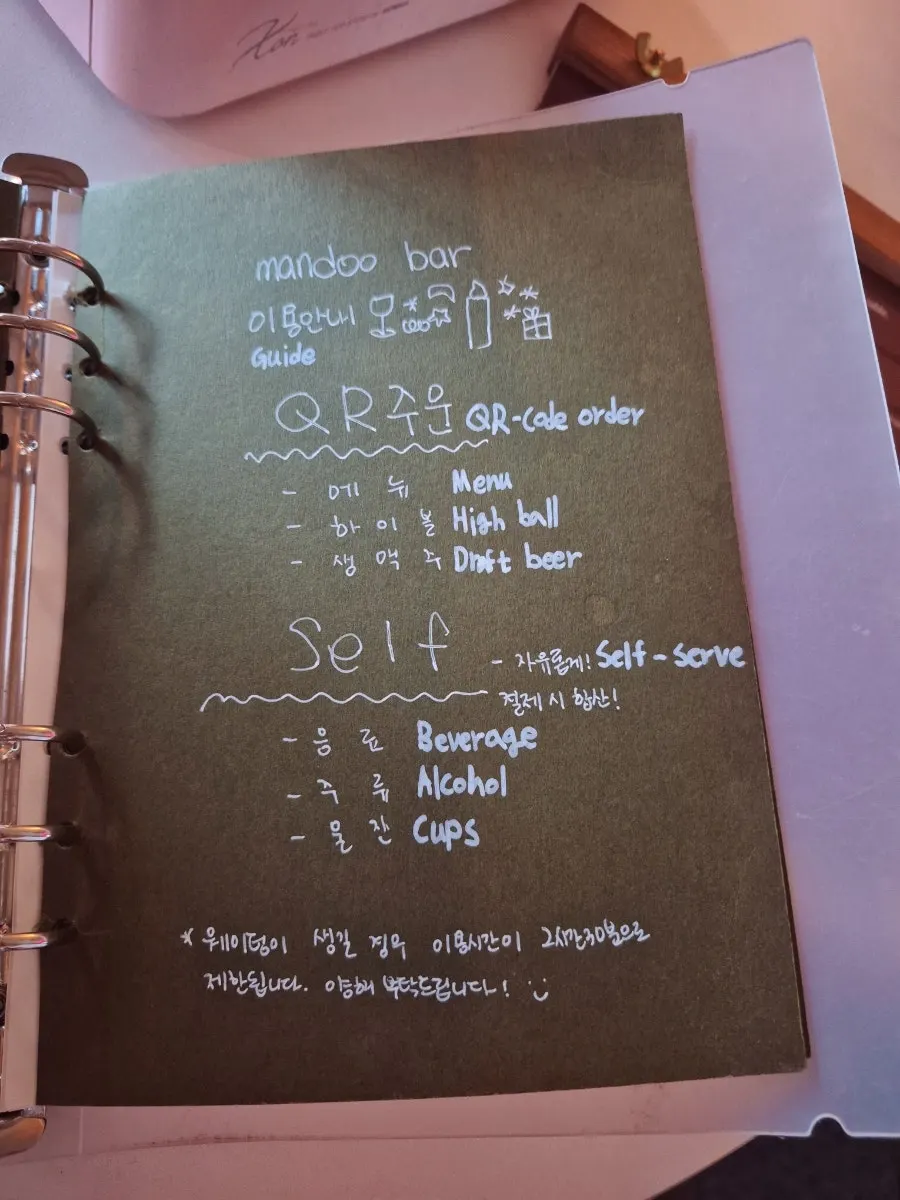 Kon
mandoo bar
이용안내
Guide
QR주문 QR-code order
- 메뉴 Menu
- 하이볼 High ball
- 생맥주 Draft beer
Self - 자유롭게! Self-serve
결제 시 합산!
- 음료 Beverage
- 주류 Alcohol
- 물잔 Cups
* 웨이팅이 생길 경우 이용시간이 2시간30분으로
제한됩니다. 양해 부탁드립니다! :)